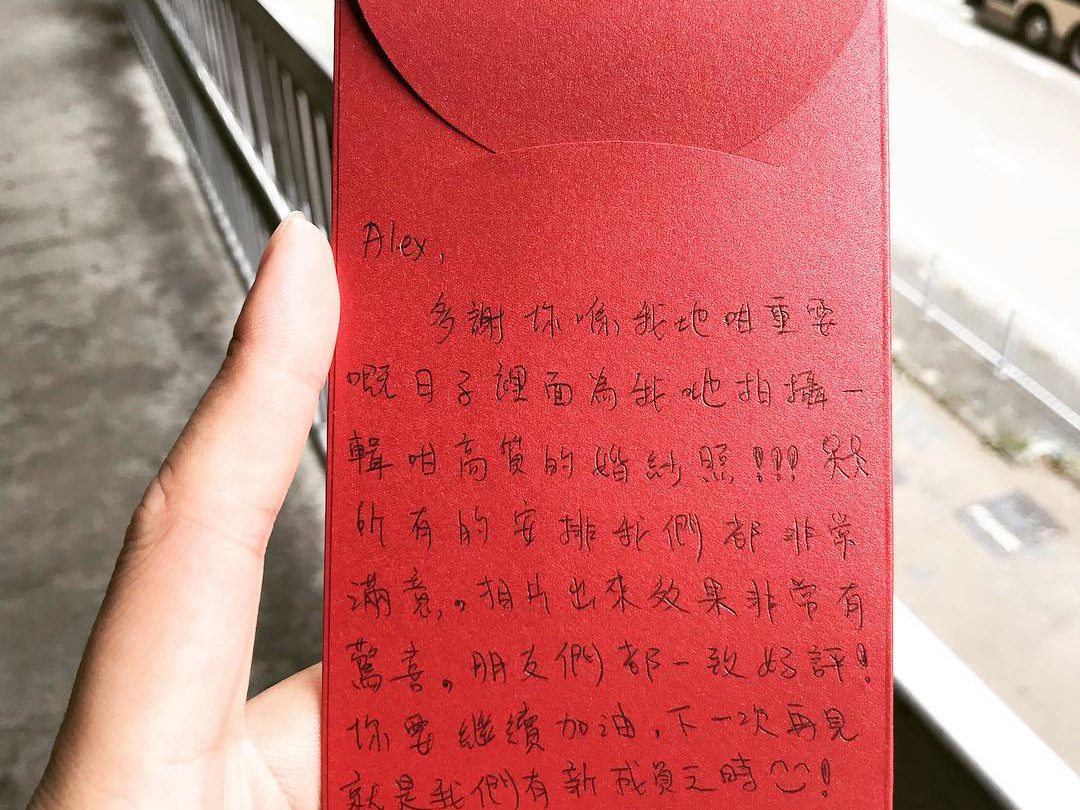 Alex,
多謝你喺我地咁重要
嘅日子裡面為我地拍攝一
輯咁高質的婚紗照!!!
所有的安排我們都非常
滿意。拍片出來效果非常有
驚喜。朋友們都一致好評!
你要繼續加油,下一次再見
就是我們有新成員之時!